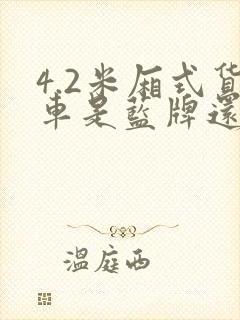 4.2米厢式货
车是蓝牌还
温庭西